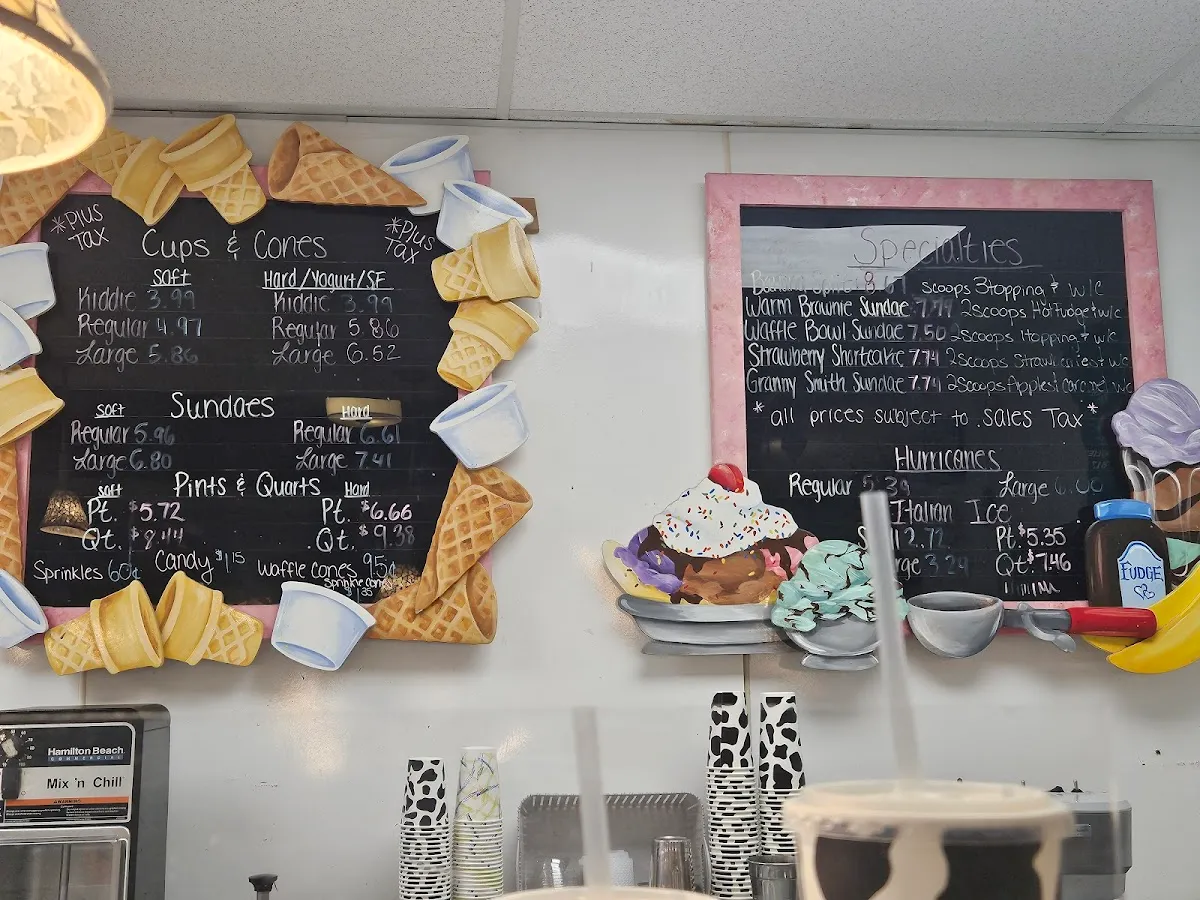 *Plus Tax
*Plus Tax
Cups & Cones
Soft Hard/Yogurt/SF
Kiddie 3.99 Kiddie 3.99
Regular 4.97 Regular 5.86
Large 5.86 Large 6.52
Sundaes
Soft Hard
Regular 5.96 Regular 6.61
Large 6.80 Large 7.41
Pints & Quarts
Soft Hard
Pt. $5.72 Pt. $6.66
Qt. $8.44 Qt. $9.38
Sprinkles 60¢ Candy $1.15 Waffle cones 95¢
Sprinkle cones
Specialties
scoops 3topping & w/c
Warm Brownie Sundae 7.79 2scoops Hotfudge & w/c
Waffle Bowl Sundae 7.50 2scoops 1topping & w/c
Strawberry Shortcake 7.74 2scoops Strawberries & w/c
Granny Smith Sundae 7.74 2scoops Apples/caramel w/c
*all prices subject to sales Tax*
Hurricanes
Regular 5.39 Large
Italian Ice
2.72 Pt. $5.35
3.24 Qt. $7.46
FUDGE
Hamilton Beach
COMMERCIAL
Mix 'n Chill
WARNING